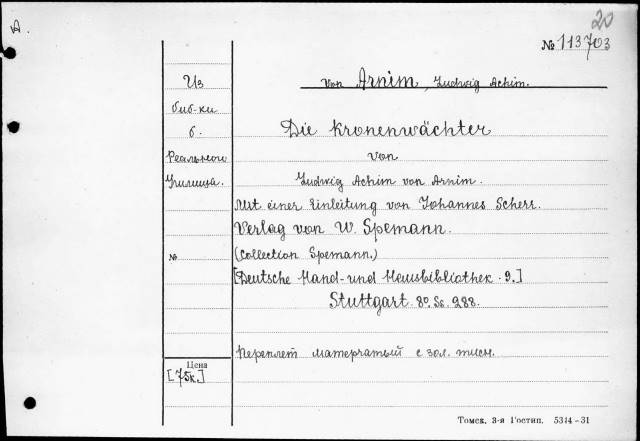 A.
20
№ 113703
Из
биб-ки
б.
Реального
Училища.
№
Цена
[75к.]
von Arnim, Ludwig Achim.
Die Kronenwächter
von
Ludwig Achim von Arnim.
Mit einer Einleitung von Johannes Scherr.
Verlag von W. Spemann.
(Collection Spemann.)
[Deutsche Hand- und Hausbibliothek. 9.]
Stuttgart. 8º. Ss. 288.
Переплет матерчатый с зол. тисн.
Томск. 3-я Гостип. 5314-31